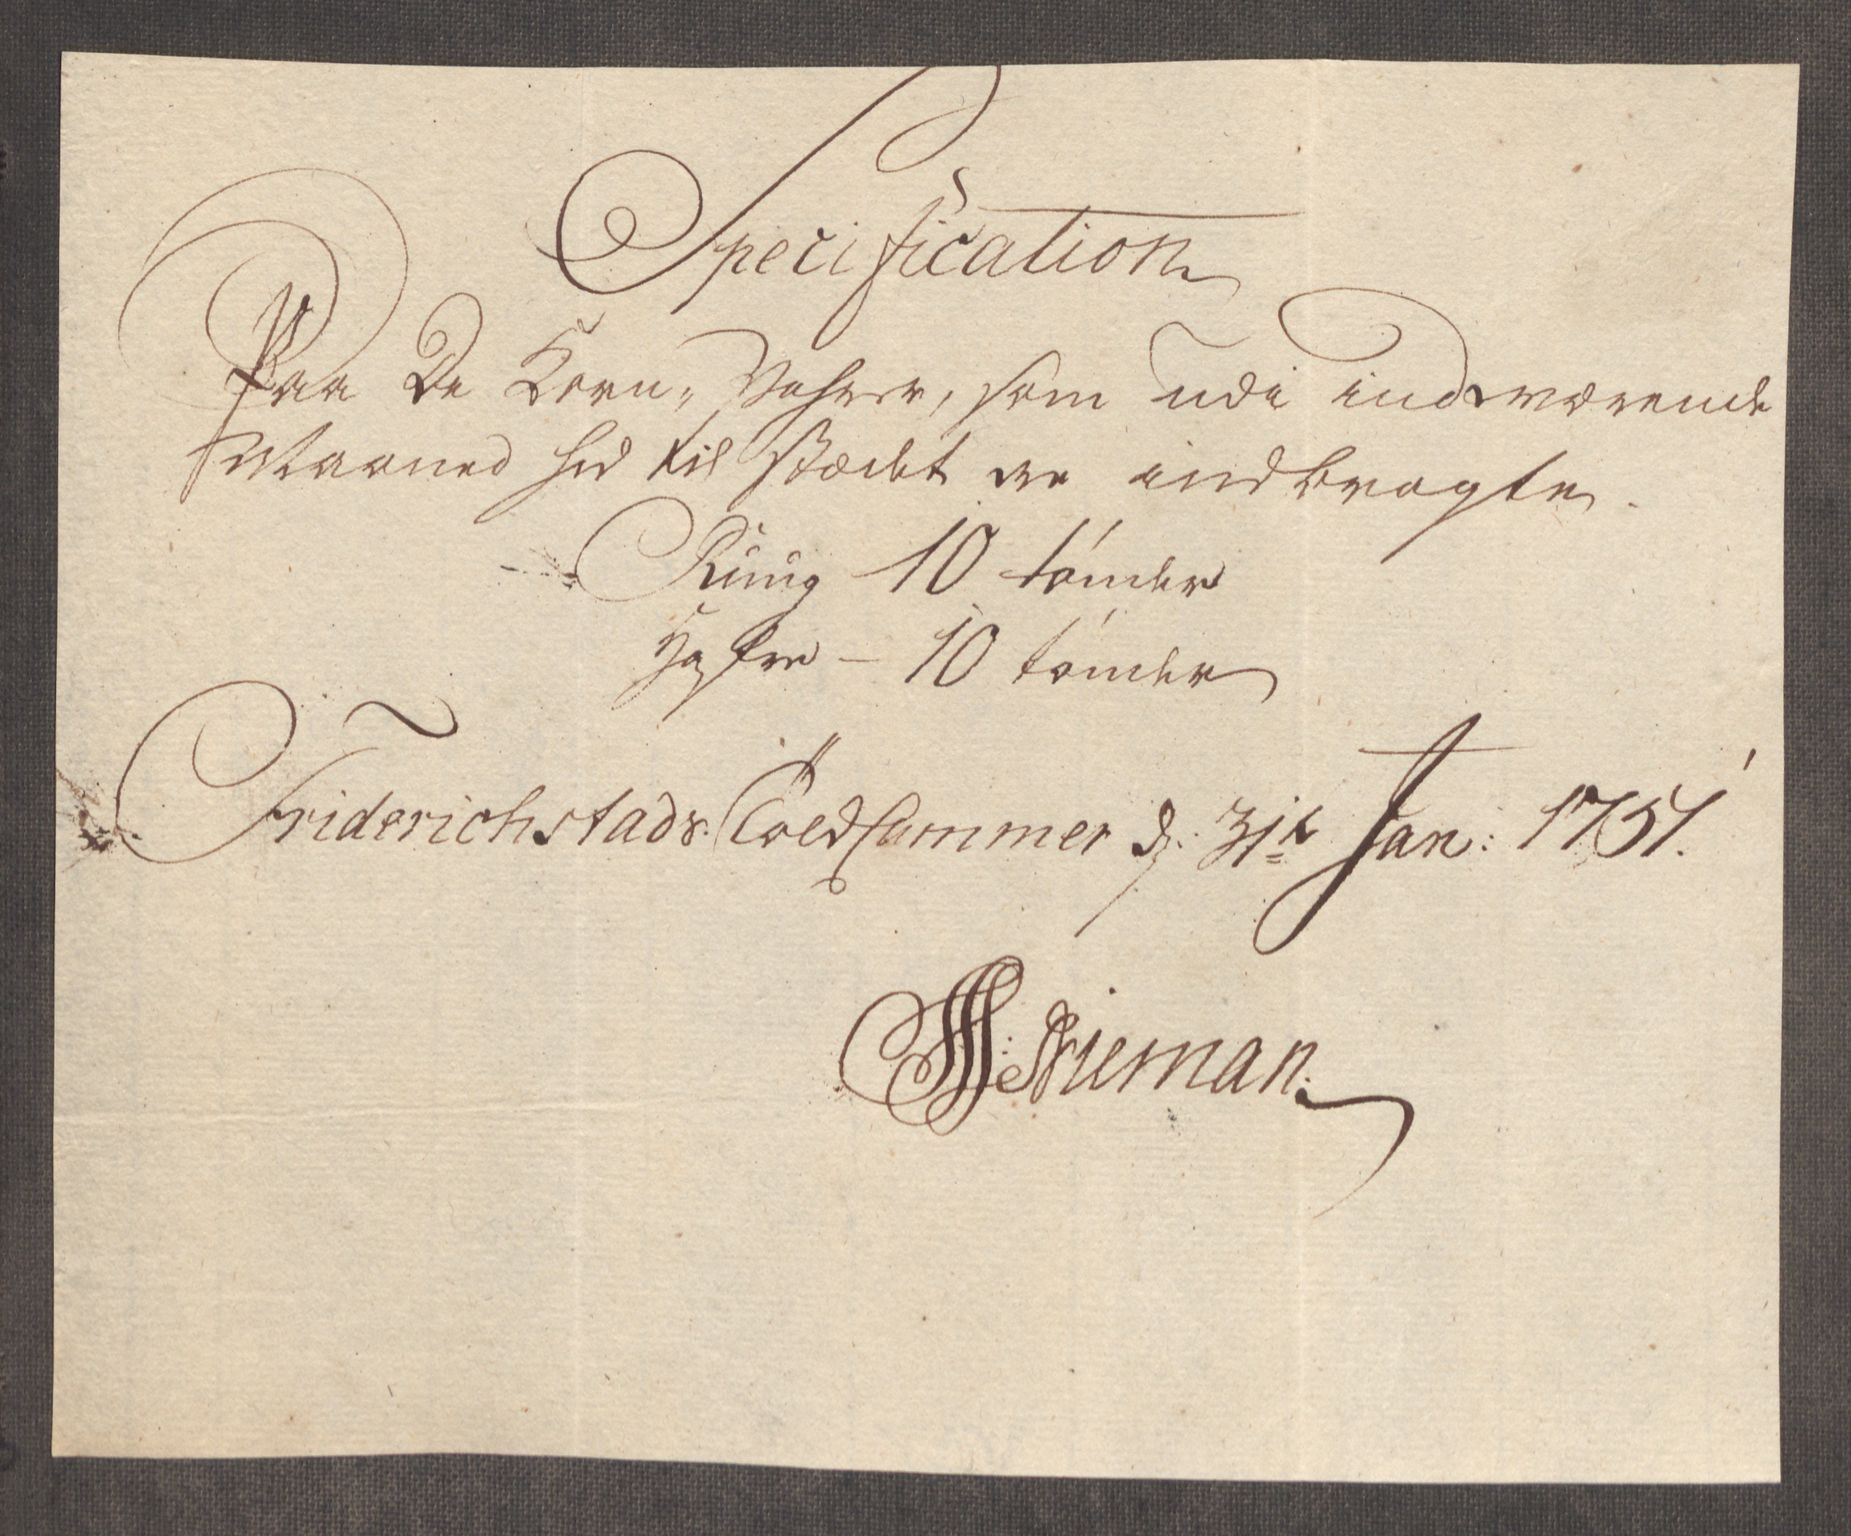 Specification
Paa De Korn-Vahrer, som udi indeværende
Maaned hid til Stædet ere indbragte.
Rug 10 tønder
Hafre – 10 tønder
Friderichstads Toldkammer d: 31te Jan: 1751.
Nieman.